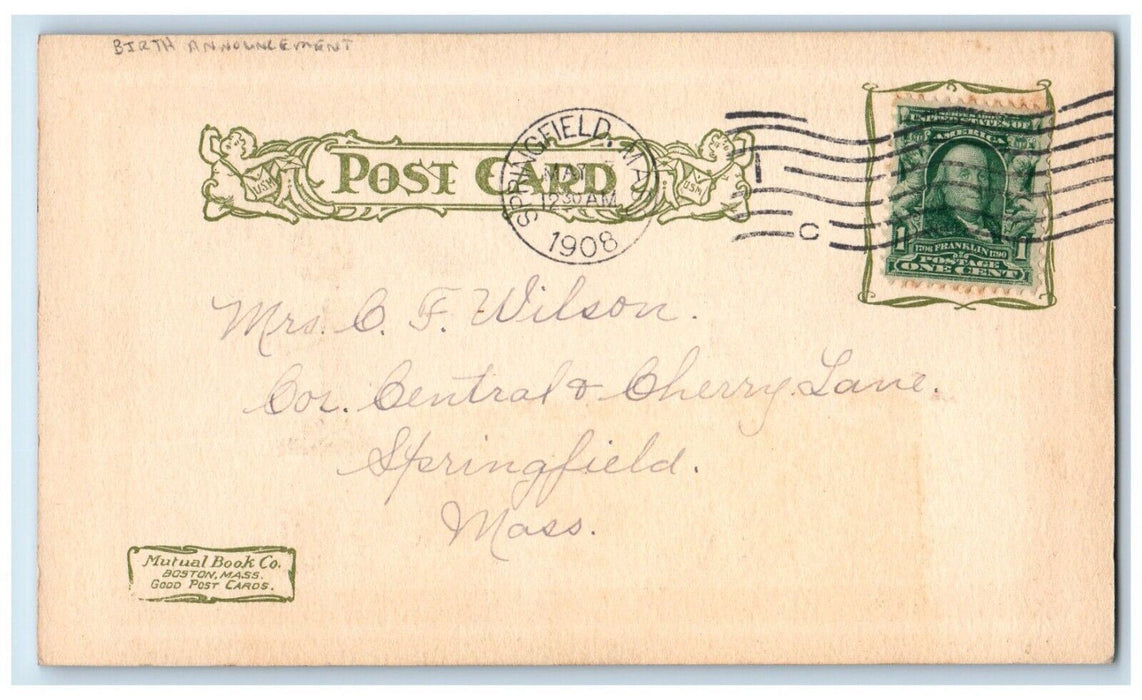 BIRTH ANNOUNCEMENT
POST CARD
U.S.M.
U.S.M.
SPRINGFIELD, MA
MAY
1230 AM
1908
C
SERIES 1902
UNITED STATES OF
AMERICA
1706 FRANKLIN 1790
1 POSTAGE 1
ONE CENT
Mrs. C. F. Wilson.
Cor. Central & Cherry Lane.
Springfield.
Mass.
Mutual Book Co.
BOSTON, MASS.
GOOD POST CARDS.